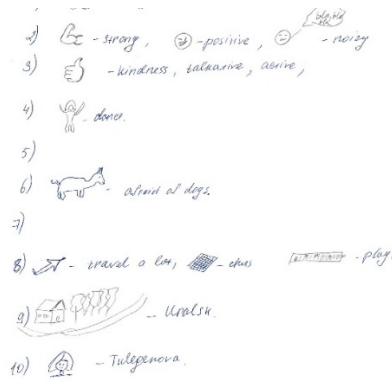 blablabla
2) - strong, - positive, - noisy
3) - kindness, talkative, active,
4) - dance.
5)
6) - afraid of dogs.
7)
8) - travel a lot, - chess - play
9) - Uralsk.
10) - Tulegenova.